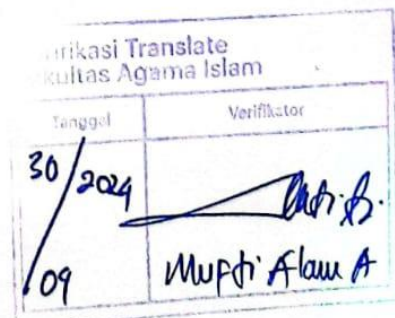 ifikasi Translate
kultas Agama Islam
Tanggal
Verifikator
30/2024
/09
Mufti Alam A